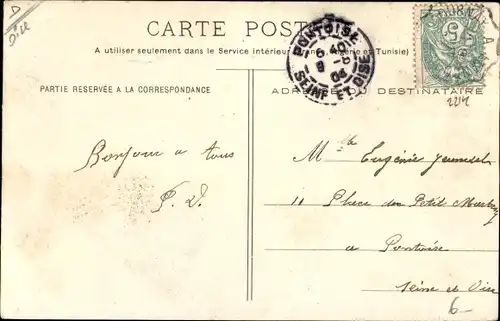 CARTE POSTALE
A utiliser seulement dans le Service intérieur (France, Algérie et Tunisie)
PARTIE RÉSERVÉE A LA CORRESPONDANCE
ADRESSE DU DESTINATAIRE
PONTOISE
SEINE ET OISE
5c
2214
Bonjour a tous
P. V.
Mlle Eugénie
11 Place du Petit Martroy
a Pontoise
Seine et Oise
6-